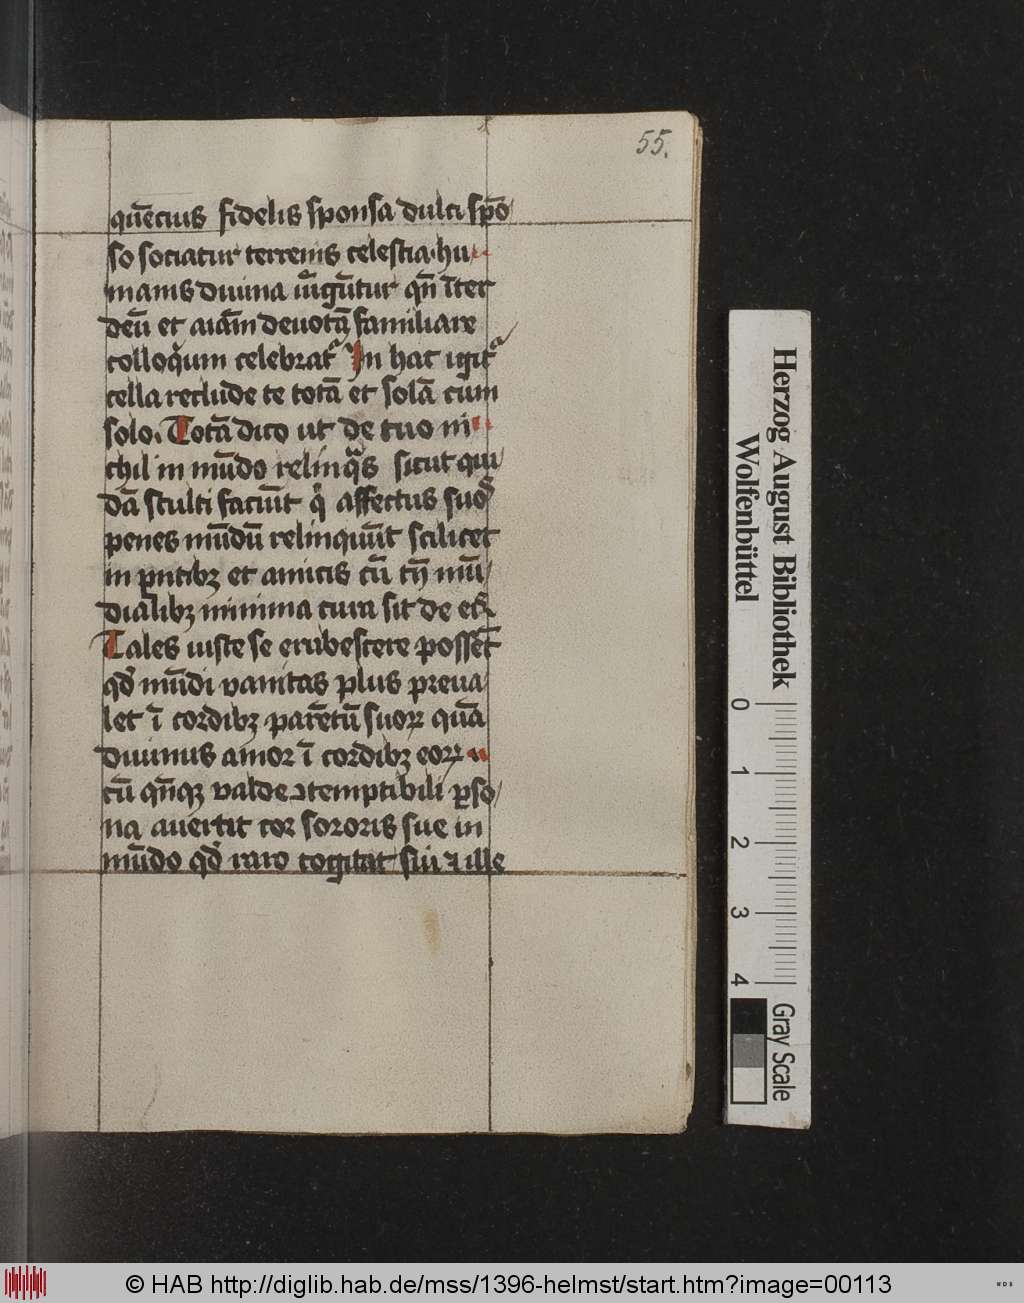 55.
quēcius fidelis sponsa dulci spō
so sociatur terrenis celestia. hu
manis diuina iūgūtur qn̄ īter
deū et aīam deuotā familiare
colloqͥum celebratᷣ In hac igitᷣ
cella reclude te totā et solā cum
solo. Totā dico ut de tuo ni
chil in mūdo relinqͣs sicut qui
dā stulti faciūt qͥ affectus suoꝝ
penes mūdū relinquūt scilicet
in pntibꝫ et amicis cū tn̄ mū
dialibꝫ minima cura sit de eis
Tales iuste se erubescere possēt
qd̛ mūdi vanitas plus preua
let ī cordibꝫ parētū suoꝝ quā
diuinus amor ī cordibꝫ eoꝝ
cū qn̄qꝫ valde ꝯtemptibili ꝑso
na auertit cor sororis sue in
mūdo qd̛ raro cogitat sui ⁊ ille
Herzog August Bibliothek
Wolfenbüttel
0 1 2 3 4
Gray Scale
© HAB http://diglib.hab.de/mss/1396-helmst/start.htm?image=00113